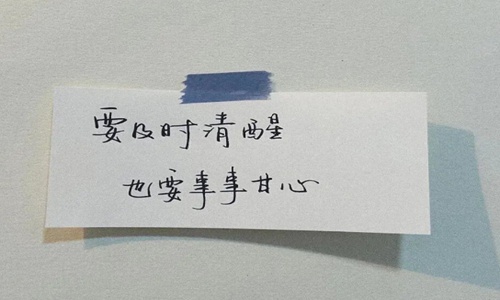 要及时清醒
也要事事甘心